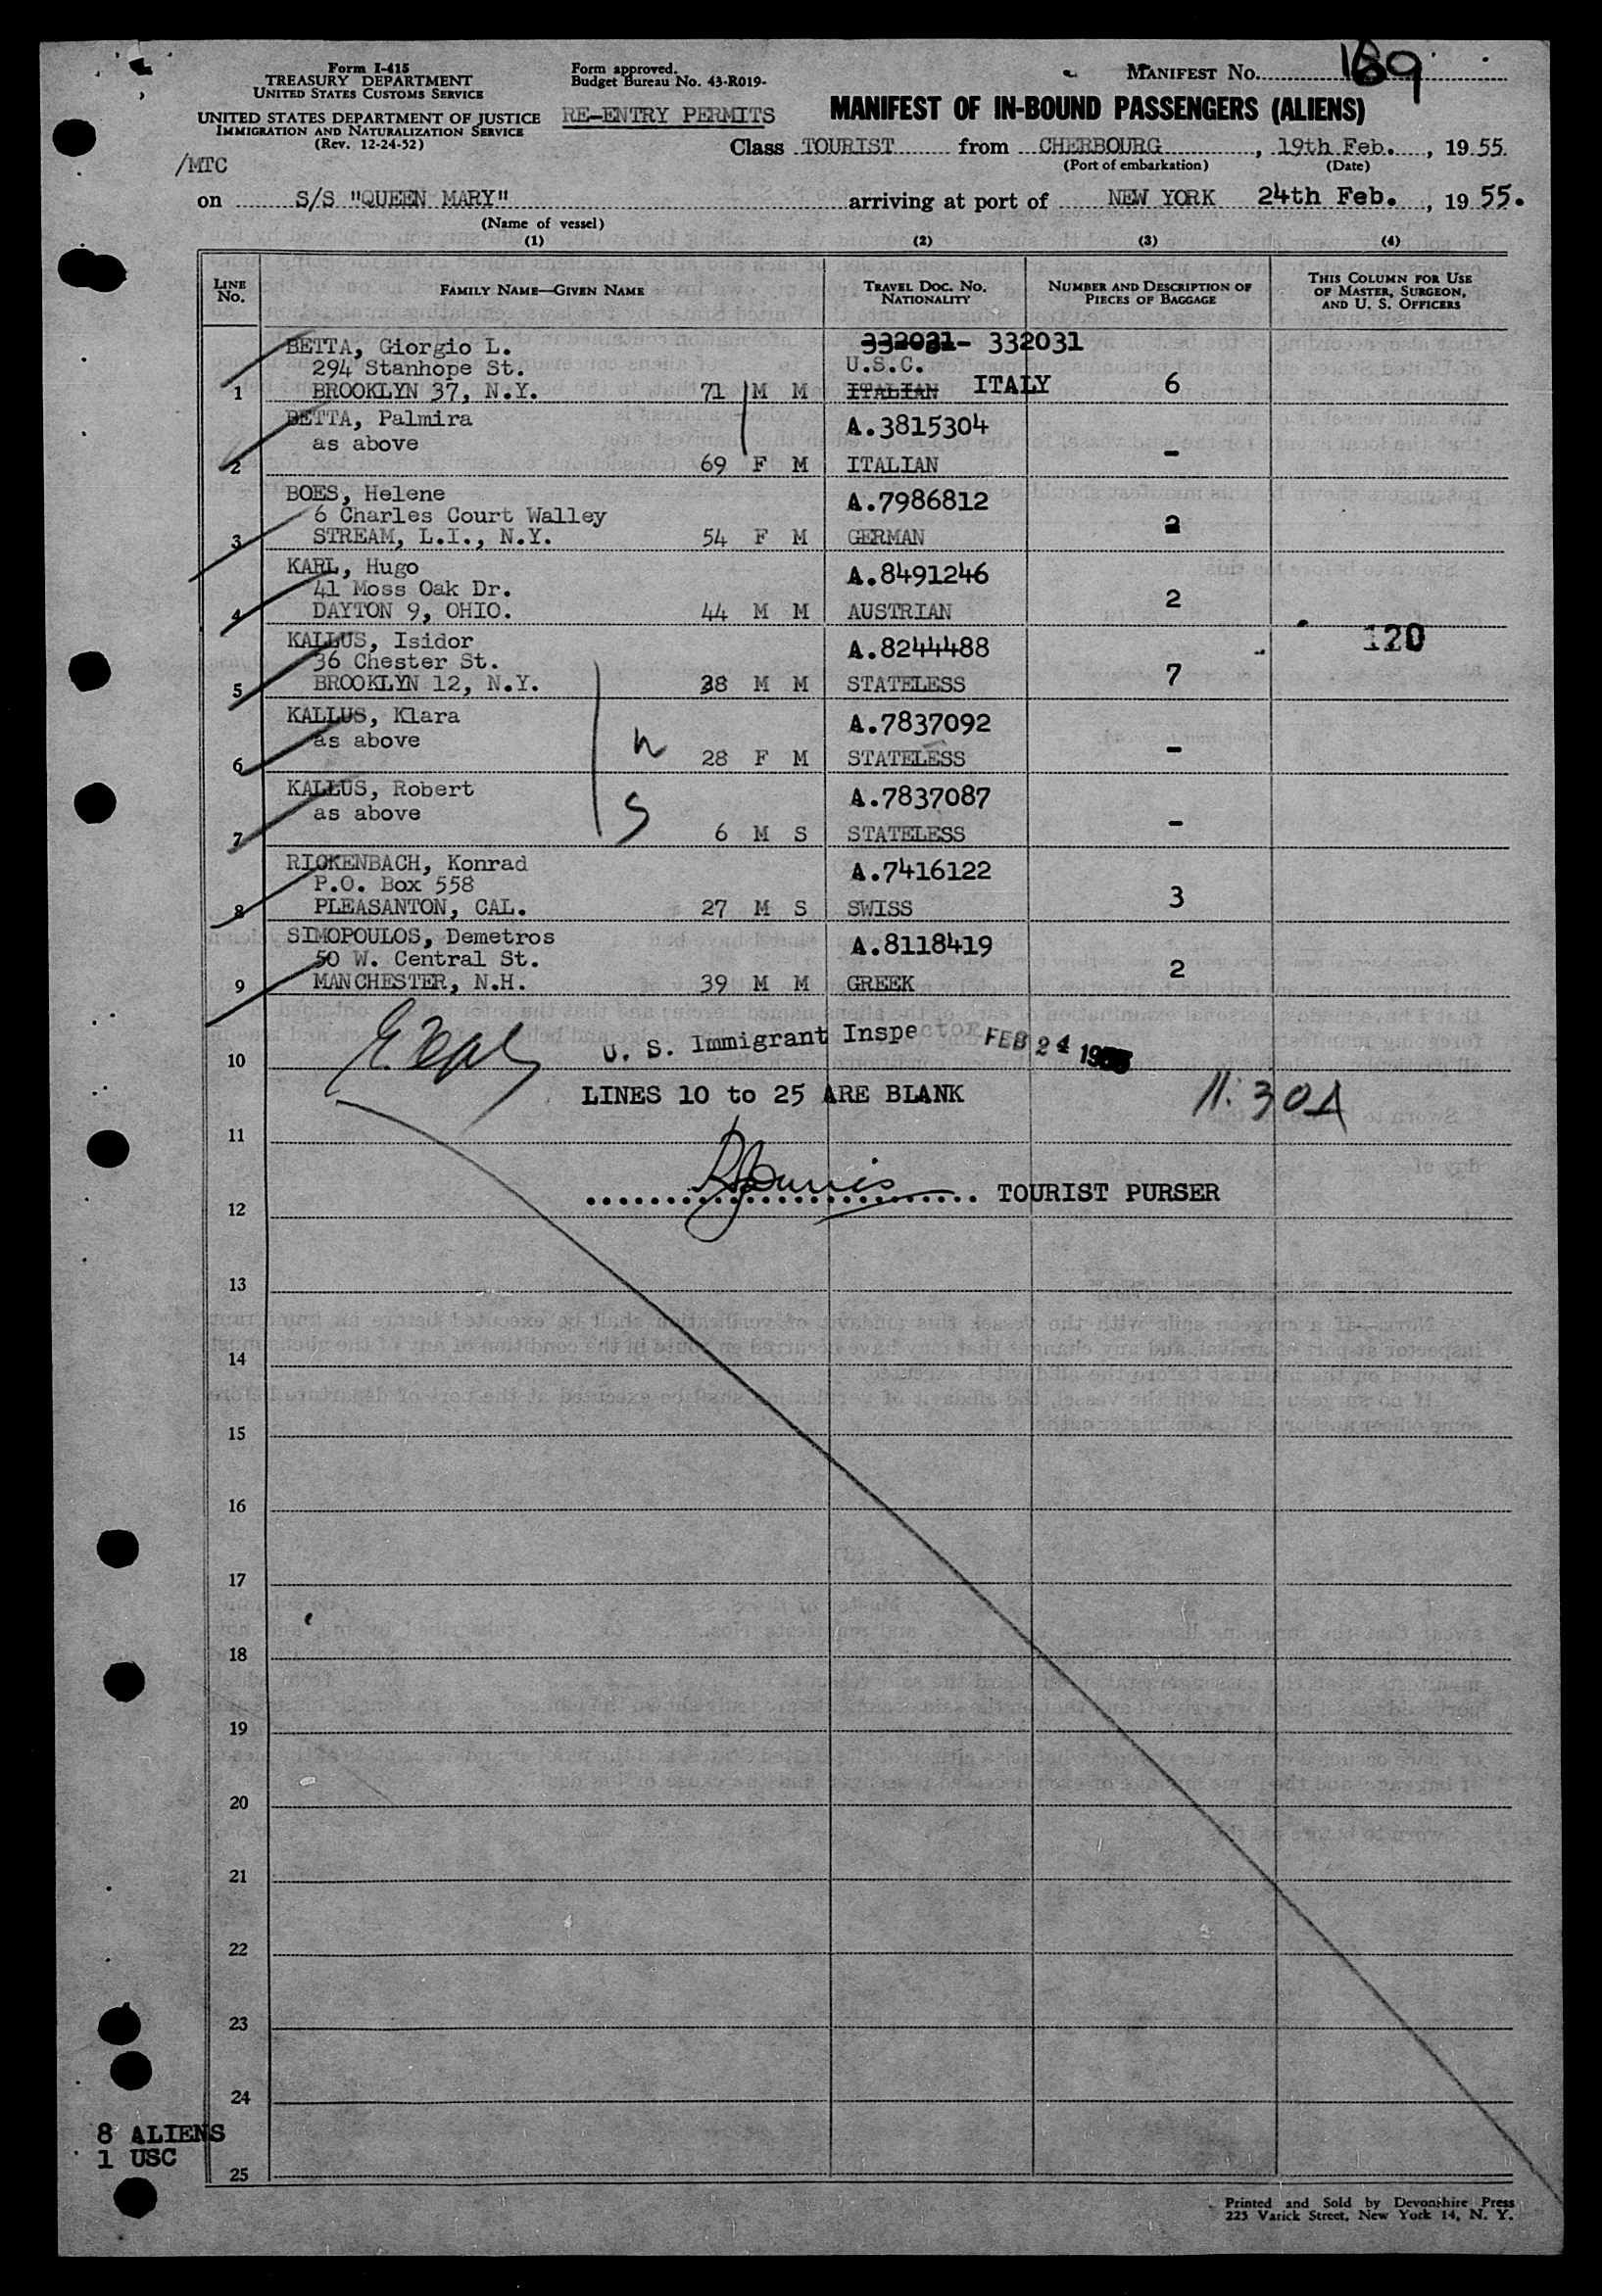 Form I-415
TREASURY DEPARTMENT
UNITED STATES CUSTOMS SERVICE
UNITED STATES DEPARTMENT OF JUSTICE
IMMIGRATION AND NATURALIZATION SERVICE
(Rev. 12-24-52)
/MTC
Form approved.
Budget Bureau No. 43-R019-
RE-ENTRY PERMITS
MANIFEST NO. 189
MANIFEST OF IN-BOUND PASSENGERS (ALIENS)
Class TOURIST from CHERBOURG, 19th Feb., 1955.
(Port of embarkation) (Date)
on S/S "QUEEN MARY" arriving at port of NEW YORK 24th Feb., 1955.
(Name of vessel)
(1) (2) (3) (4)
LINE NO.
FAMILY NAME—GIVEN NAME
TRAVEL DOC. NO. NATIONALITY
NUMBER AND DESCRIPTION OF PIECES OF BAGGAGE
THIS COLUMN FOR USE OF MASTER, SURGEON, AND U. S. OFFICERS
BETTA, Giorgio L. 332031- 332031
294 Stanhope St. U.S.C.
1 BROOKLYN 37, N.Y. 71 M M ITALIAN ITALY 6
BETTA, Palmira A.3815304
as above
2 69 F M ITALIAN -
BOES, Helene A.7986812
6 Charles Court Walley
3 STREAM, L.I., N.Y. 54 F M GERMAN 2
KARL, Hugo A.8491246
41 Moss Oak Dr.
4 DAYTON 9, OHIO. 44 M M AUSTRIAN 2
120
KALLUS, Isidor A.8244488
36 Chester St.
5 BROOKLYN 12, N.Y. 38 M M STATELESS 7
KALLUS, Klara A.7837092
as above
6 W 28 F M STATELESS -
KALLUS, Robert A.7837087
as above
7 S 6 M S STATELESS -
RICKENBACH, Konrad A.7416122
P.O. Box 558
8 PLEASANTON, CAL. 27 M S SWISS 3
SIMOPOULOS, Demetros A.8118419
50 W. Central St.
9 MANCHESTER, N.H. 39 M M GREEK 2
10 U. S. Immigrant Inspector FEB 24 1955
LINES 10 to 25 ARE BLANK 11:30A
11
12 TOURIST PURSER
13
14
15
16
17
18
19
20
21
22
23
24
8 ALIENS
1 USC
25
Printed and Sold by Devonshire Press
225 Varick Street, New York 14, N. Y.